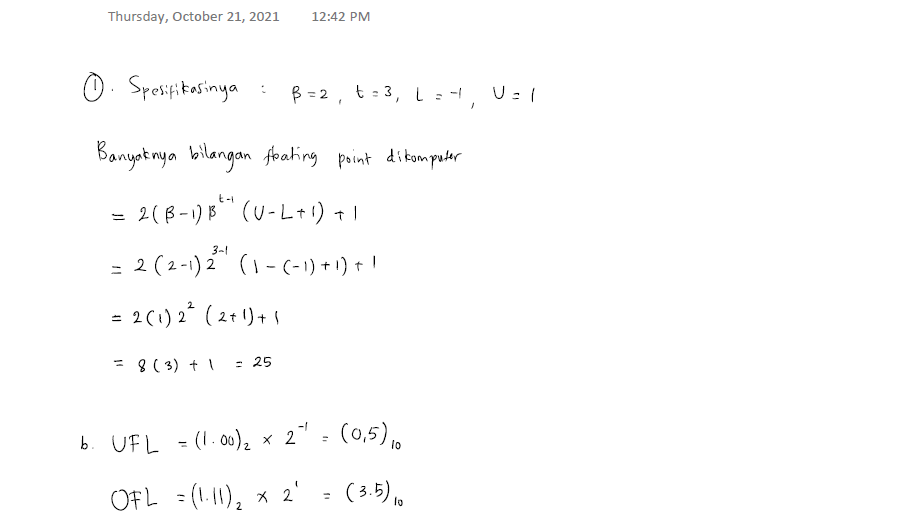 Thursday, October 21, 2021 12:42 PM
①. Spesifikasinya : β = 2, t = 3, L = -1, U = 1
Banyaknya bilangan floating point dikomputer
= 2(β-1)β^{t-1} (U-L+1) + 1
= 2(2-1)2^{3-1} (1-(-1)+1) + 1
= 2(1)2^{2} (2+1) + 1
= 8(3) + 1 = 25
b. UFL = (1.00)₂ × 2^{-1} = (0,5)₁₀
OFL = (1.11)₂ × 2^{1} = (3.5)₁₀